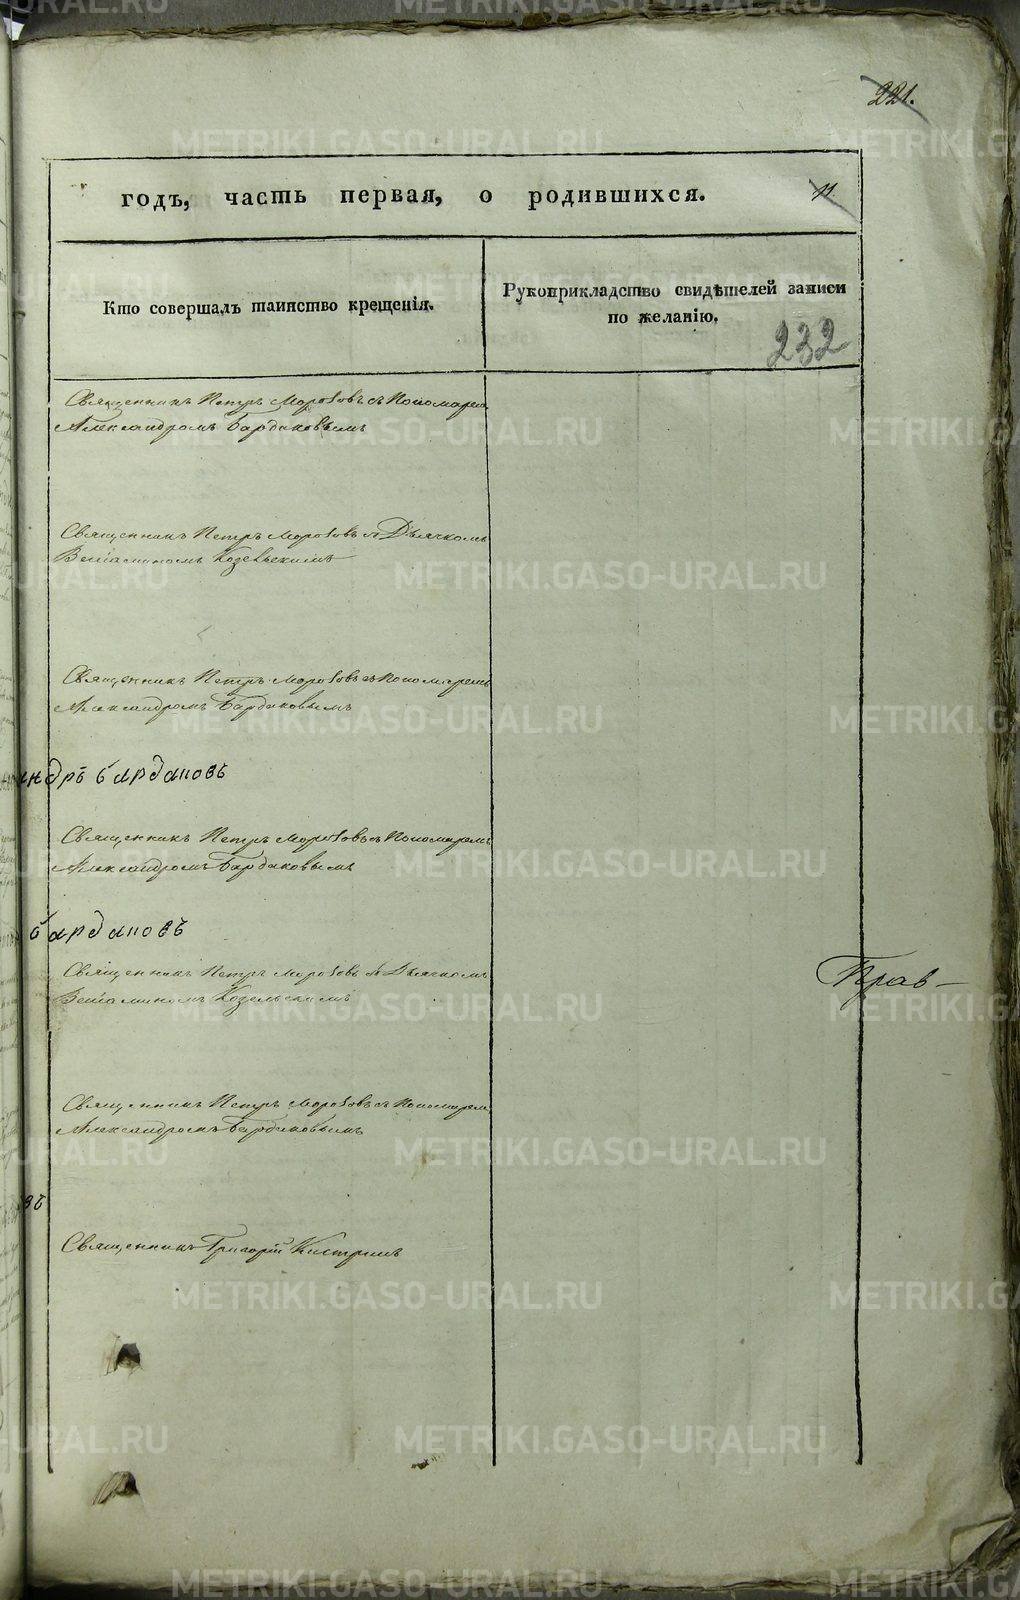 221.
годъ, часть первая, о родившихся.
11
Кто совершалъ таинство крещенія.
Рукоприкладство свидѣтелей записи
по желанію.
232
Священникъ Петръ Морозовъ съ Пономаремъ
Александромъ Бардаковымъ
Священникъ Петръ Морозовъ съ Дьячкомъ
Веніаминомъ Козельскимъ
Священникъ Петръ Морозовъ съ Пономаремъ
Александромъ Бардаковымъ
ндръ бардаковъ
Священникъ Петръ Морозовъ съ Пономаремъ
Александромъ Бардаковымъ
бардаковъ
Священникъ Петръ Морозовъ съ Дьячкомъ
Веніаминомъ Козельскимъ
Прав-
Священникъ Петръ Морозовъ съ Пономаремъ
Александромъ Бардаковымъ
въ
Священникъ Григорій
METRIKI.GASO-URAL.RU